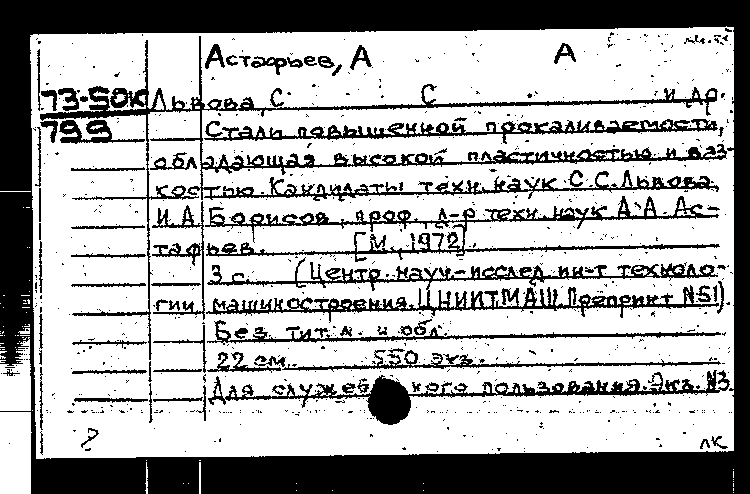 Астафьев, А А
73-50К Львова, С С и др.
799 Сталь повышенной прокаливаемости,
обладающая высокой пластичностью и вяз-
костью. Кандидаты техн. наук С.С. Львова,
И.А. Борисов, проф., д-р техн. наук А.А. Ас-
тафьев. [М., 1972].
3 с. (Центр. науч.-исслед. ин-т техноло-
гии машиностроения. ЦНИИТМАШ. Препринт №51).
Без тит. л. и обл.
22 см. 550 экз.
Для служебного пользования. Экз. №3
лк